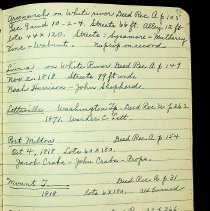 Greenwich on White river Deed Rec A p 105
Sec 9 and 10-2-4. Streets 66 ft. Alley 12 ft
Lots 44 x 120. Streets: Sycamore - Mulberry
Vine - Walnut. No prop on record
Lima on White river Deed Rec A p 149
Nov 2, 1818 Streets 99 ft wide
Noah Harrison - John Shepherd
Washington Tp. Deed Rec p 262
1871. Warder C. Lett.
Port Milton Deed Rec A p 154
Oct 4, 1818 Lots 60 x 180.
Jacob Crabs - John Crabs - Props.
Mount T. Deed Rec A p 21
1818 Lots 60 x 180.